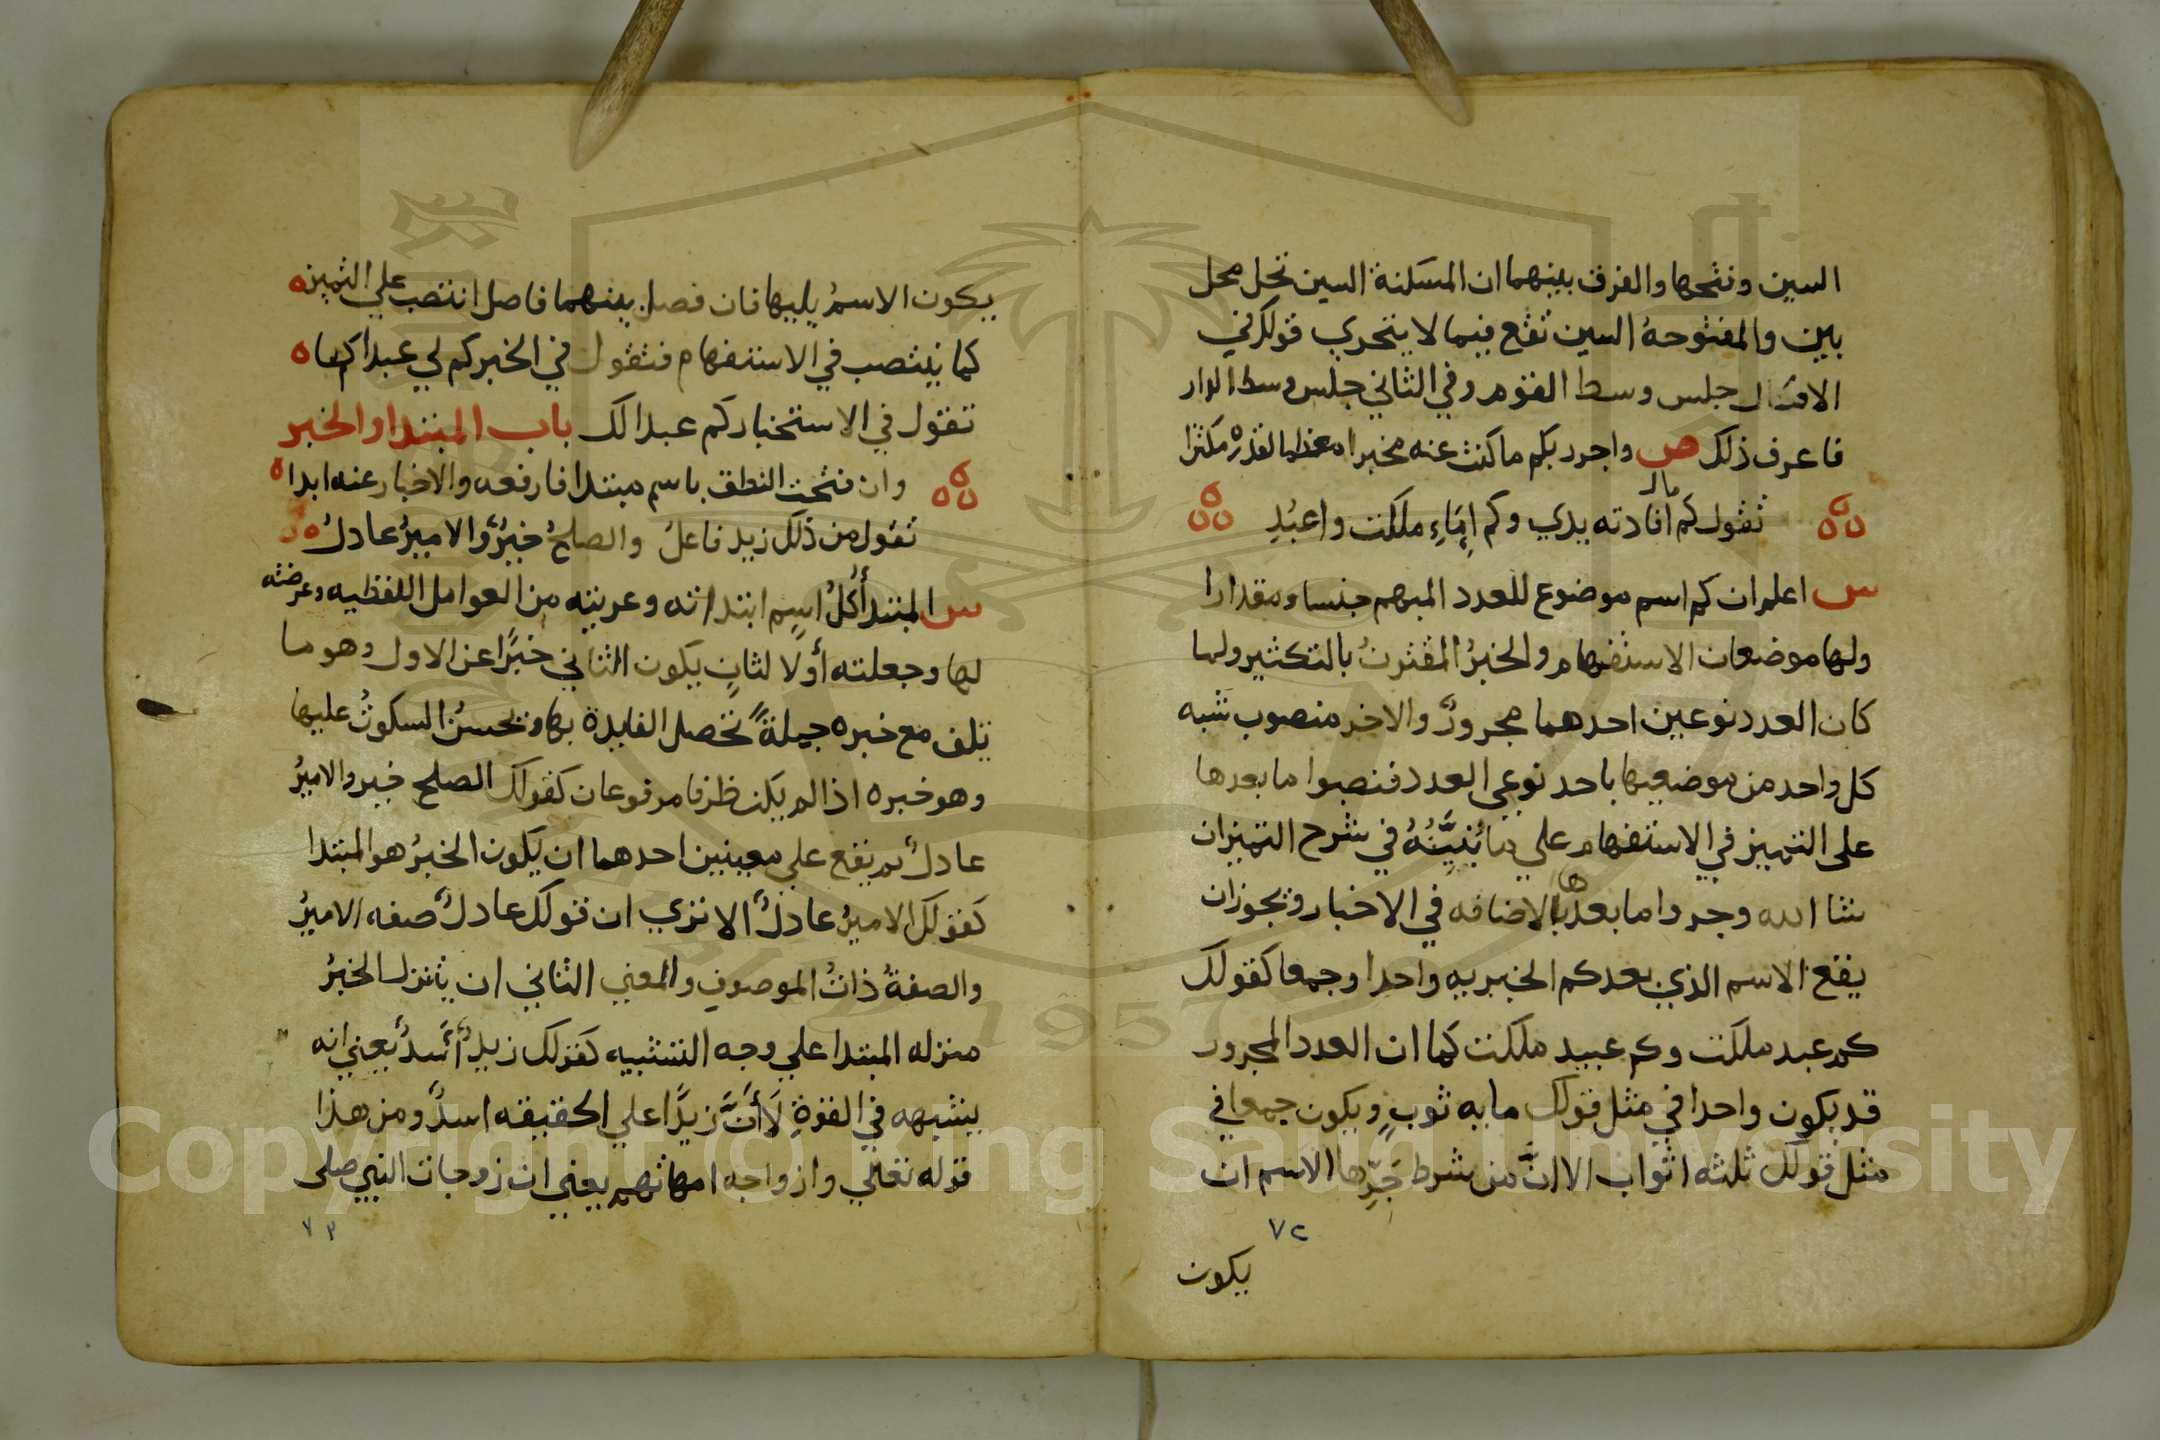 السين وفتحها والفرق بينهما ان المسكنة السين تحل محل
بين والمفتوحة السين تقع فيما لا يتجزي قولك في
الاول جلس وسط القوم وفي الثاني جلس وسط الدار
فاعرف ذلك ص واجرر بكم ما كنت عنه مخبرا معظما لقدره مكثرا
تقول كم مال افادته يدي وكم اِمَاءٍ ملكت واعبُدِ
س اعلم ان كم اسم موضوع للعدد المبهم جنسا ومقدارا
ولها موضعان الاستفهام والخبرُ المقترنُ بالتكثير ولما
كان العدد نوعين احدهما مجرورٌ والاخر منصوب شبه
كل واحد من موضعيها باحد نوعي العدد فنصبوا ما بعدها
على التمييز في الاستفهام علي ما نُبَيِّنُهُ في شرح التمييز ان
شا الله وجروا ما بعدها بالاضافه في الاخبار ويجوز ان
يقع الاسم الذي بعدكم الخبريه واحدا وجمعا كقولك
كم عبد ملكت وكم عبيد ملكت كما ان العدد المجرور
قد يكون واحدا في مثل قولك مايه ثوبٍ ويكون جمعا في
مثل قولك ثلثه اثواب الا انَّ من شرط جَرِّها الاسم ان
٧٢
يكون
يكون الاسمُ يليها فان فصل بينهما فاصل انتصب علي التمييز ه
كما ينتصب في الاستفهام فتقول في الخبر كم لي عبدا كما ه
تقول في الاستخبار كم عبدا لك باب المبتدا والخبر
وان فتحت النطق باسم مبتدا فارفعه والاخبار عنه ابدا ه
تقول من ذلك زيد فاعلٌ والصلحُ خيرٌ والاميرُ عادلُ ه
س المبتدأ كُلُّ اسمٍ ابتداته وعريته من العوامل اللفظيه وعرضته
لها وجعلته أولا لثانٍ يكون الثاني خبرًا عن الاول وهو ما
تلف مع خبره جملةً تحصل الفايدة بها ويحسنُ السكوتُ عليها
وهو خبره اذا لم يكن ظرفا مرفوعان كقولك الصلح خير والاميرُ
عادلٌ ثم يقع علي معنيين احدهما ان يكون الخبرُ هو المبتدا
كقولك الاميرُ عادلٌ الا تري ان قولك عادلٌ صفه الاميرُ
والصفةُ ذاتُ الموصوفِ والمعني الثاني ان يتنزل الخبرُ
منزله المبتدا علي وجه التشبيه كقولك زيدٌ أَسَدٌ يعني انه
يشبهه في القوةِ لَا أنَّ زيدًا علي الحقيقه اسدٌ ومن هذا
قوله تعلي وازواجه امهاتهم يعني ان زوجات النبي صلى
٧٣
Copyright © King Saud University
1957